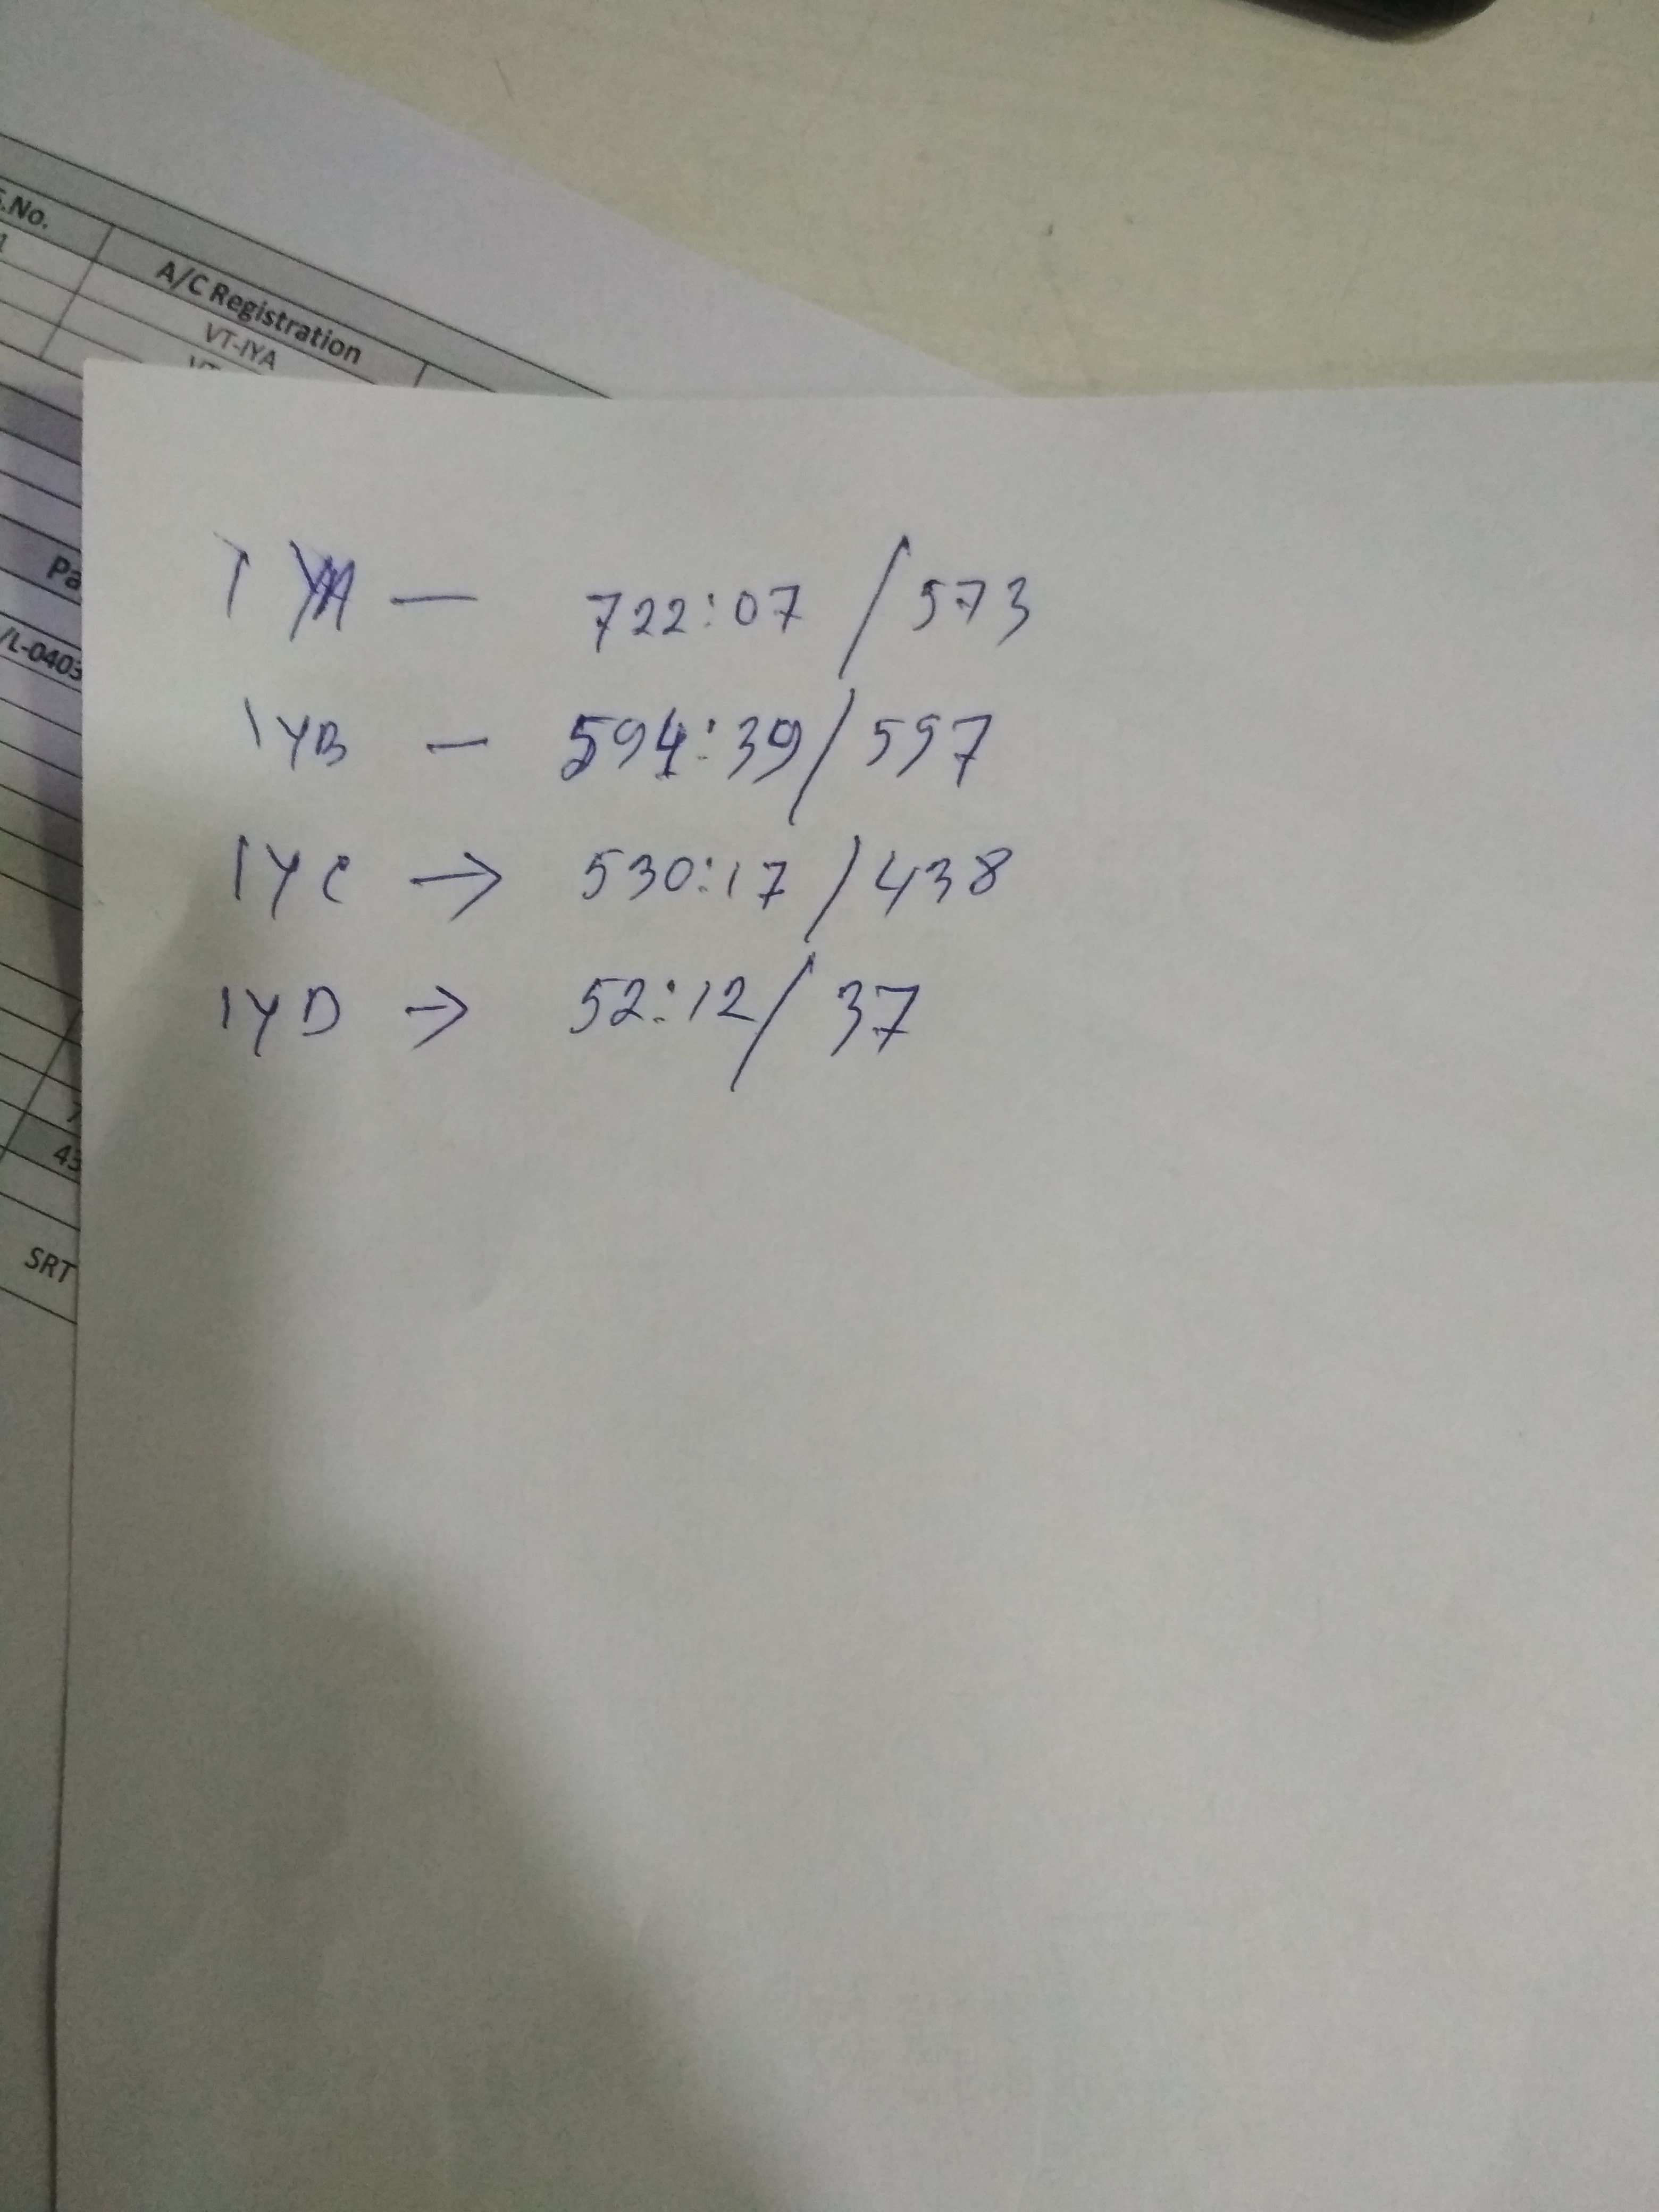 S.No.
A/C Registration
1
VT-IYA
Pa
/L-0403
7
43
SRT
IYA — 722:07 / 573
IYB — 594:39 / 597
IYC → 530:17 / 438
IYD → 52:12 / 37